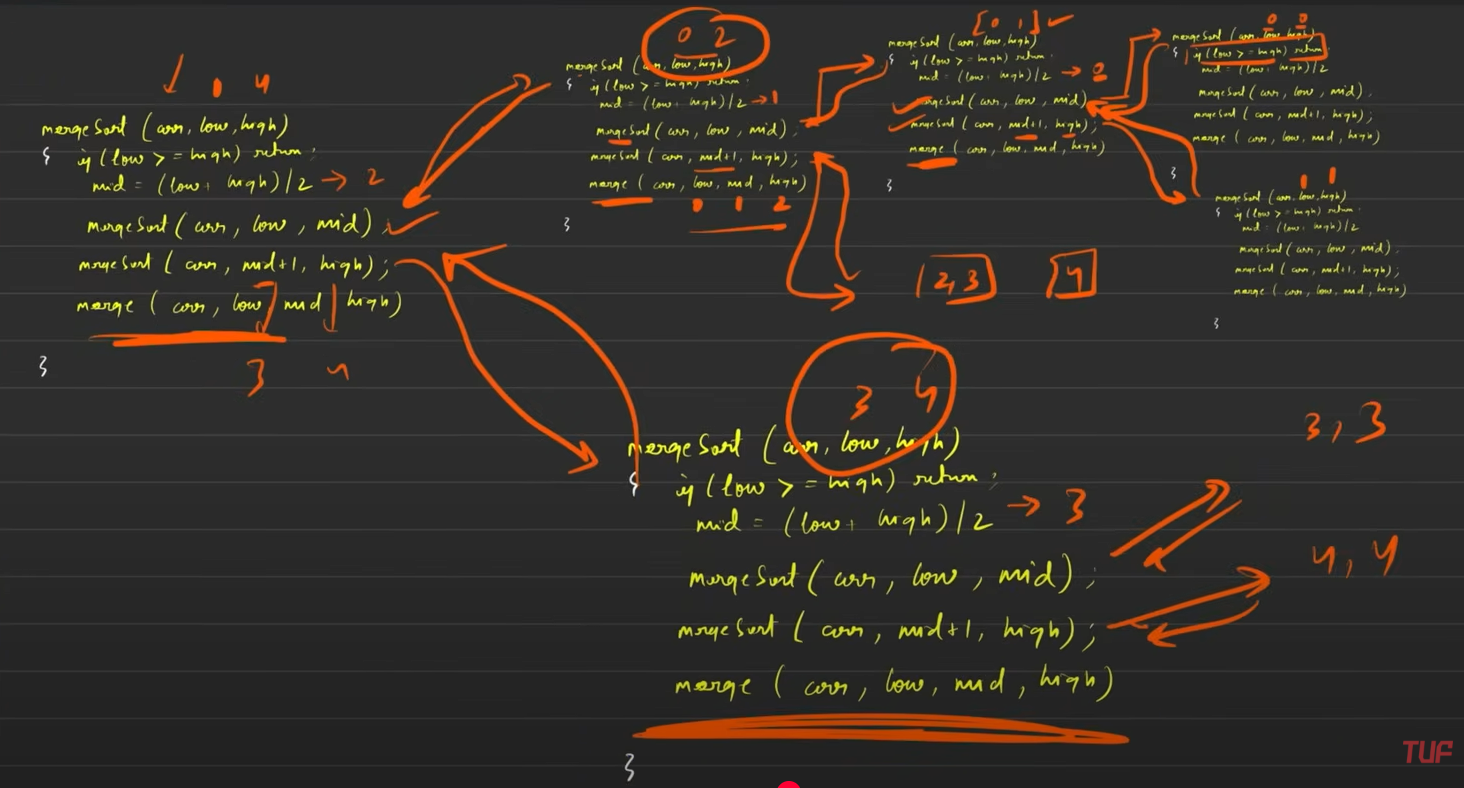 0 4
mergeSort (arr, low, high)
{ if (low >= high) return;
mid = (low + high)/2 → 2
mergeSort (arr, low, mid);
mergeSort (arr, mid+1, high);
merge (arr, low, mid, high)
}
3 4
0 2
mergeSort (arr, low, high)
{ if (low >= high) return
mid = (low + high)/2 → 1
mergeSort (arr, low, mid);
mergeSort (arr, mid+1, high);
merge (arr, low, mid, high)
0 1 2
}
[0 1]
mergeSort (arr, low, high)
{ if (low >= high) return
mid = (low + high)/2 → 0
mergeSort (arr, low, mid)
mergeSort (arr, mid+1, high);
merge (arr, low, mid, high)
}
0 0
mergeSort (arr, low, high)
{ if (low >= high) return
mid = (low + high)/2
mergeSort (arr, low, mid)
mergeSort (arr, mid+1, high);
merge (arr, low, mid, high)
}
1 1
mergeSort (arr, low, high)
{ if (low >= high) return
mid = (low + high)/2
mergeSort (arr, low, mid)
mergeSort (arr, mid+1, high);
merge (arr, low, mid, high)
}
2,3 4
3 4
mergeSort (arr, low, high)
{ if (low >= high) return;
mid = (low + high)/2 → 3
mergeSort (arr, low, mid);
mergeSort (arr, mid+1, high);
merge (arr, low, mid, high)
}
3,3
4,4
TUF